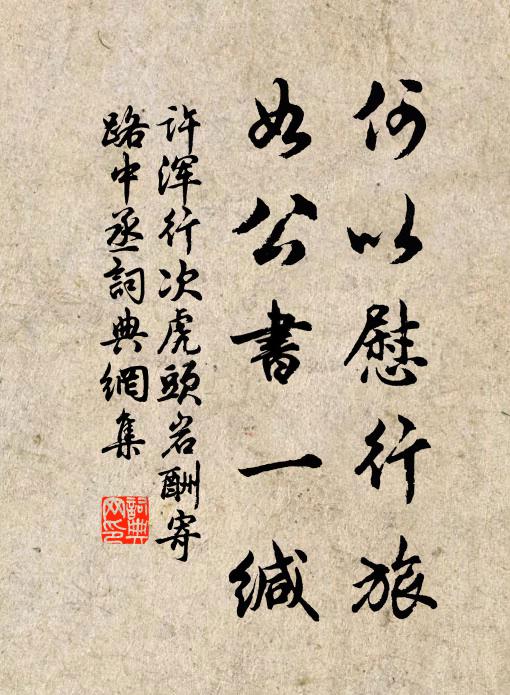 何以慰行旅
如公書一缄
许浑行次虎頭岩酬寄
路中丞詞典網集
詞典网印